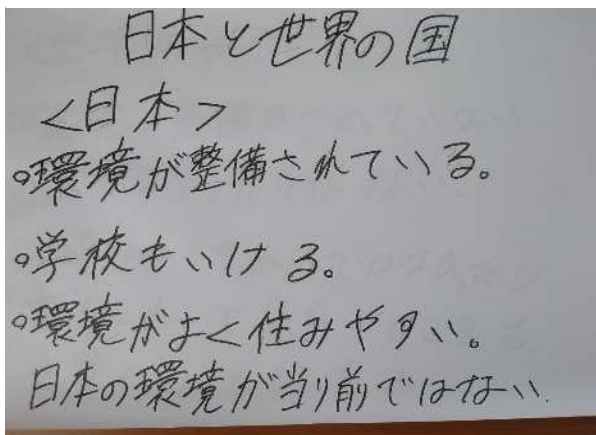 日本と世界の国
<日本>
○環境が整備されている。
○学校もいける。
○環境がよく住みやすい。
日本の環境が当り前ではない.